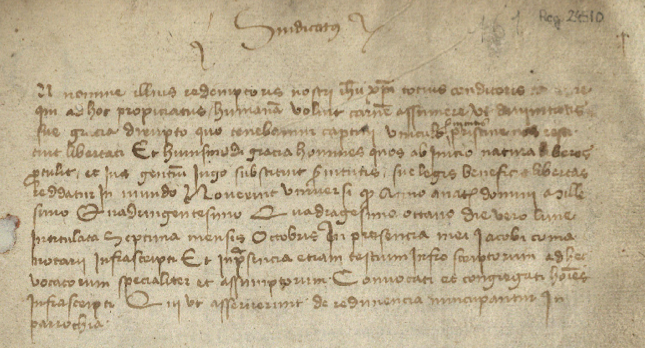 Sindicatus
Reg. 2510
In nomine illius redemptoris nostri ihu xpi totius conditoris
qui ad hoc propiciatus humanam voluit carnem assumere ut divinitatis
sue gracia dirupto quo tenebamur captivi vinculo pristine nos resti
tuit libertati Et huiusmodi gracia homines quos ab inicio natura liberos
ptulit et ius gentium iugo substituit servitutis sue legis beneficio libertas
reddatur In mundo Noverint universi qd Anno a nat domini Mille
simo Quadringentesimo Quadragesimo octavo die vero lune
Intitulata Septima mensis Octobris In presencia mei Iacobi coma
notarii Infrascripti Et in presencia etiam testium Infrascriptorum ad hec
vocatorum specialiter et assumptorum Convocati et congregati hoies
Infrascripti Qui ut asseruerunt de redimencia nuncupantur In
parrochia